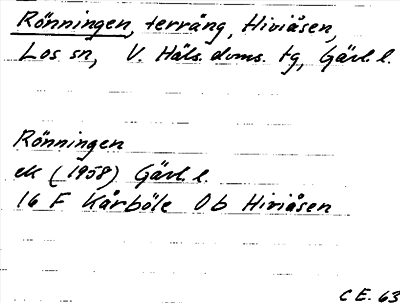 Rönningen, terräng, Hiviåsen,
Los sn, V. Häls. doms. tg, Gävl. l.
Rönningen
ek (1958) Gävl. l.
16 F Kårböle 0 b Hiviåsen
C E. 63